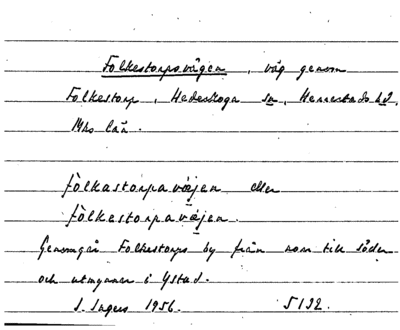 Folkestorpsvägen, väg genom
Folkestorp, Hedeskoga sn, Herrestads hd,
Mhs län.
fòlkastorpavä̀jen eller
fòlkestorpavä̀jen.
Genomgår Folkestorps by från norr till söder
och utmynnar i Ystad.
I. Ingers 1956. 5132.